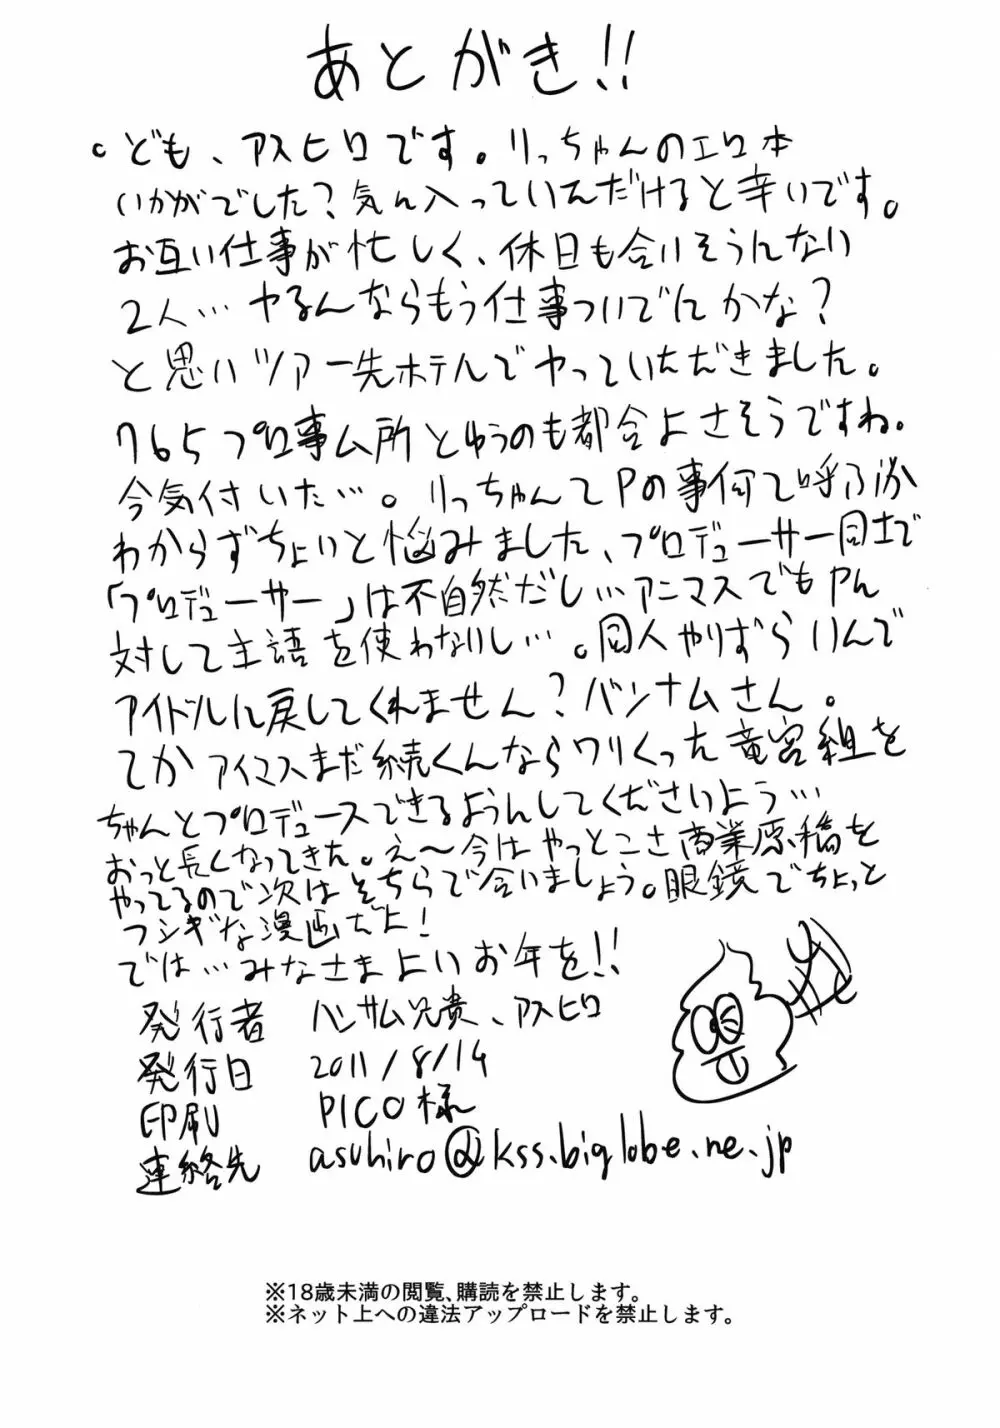 あとがき!!
。ども、アスヒロです。りっちゃんのエロ本
いかがでした?気に入っていただけると幸いです。
お互い仕事が忙しく、休日も合いそうにない
2人…ヤるんならもう仕事ついでにかな?
と思いツアー先ホテルでやっていただきました。
765プロ事ム所とゆうのも都合よさそうですね。
今気付いた…。りっちゃんてPの事何て呼ぶか
わからずちょいと悩みました、プロデューサー同士で
「プロデューサー」は不自然だし…アニマスでもPに
対して主語を使わないし…。同人やりずらいんで
アイドルに戻してくれません?バンナムさん。
てかアイマスまだ続くんならワリくった竜宮組を
ちゃんとプロデュースできるようにしてくださいよう…
おっと長くなってきた。え～今はやっとこさ商業原稿を
やってるので次はそちらで合いましょう。眼鏡でちょっと
フシギな漫画だよ!
では…みなさまよいお年を!!
発行者 ハンサム兄貴、アスヒロ
発行日 2011/8/14
印刷 PICO様
連絡先 asuhiro@kss.biglobe.ne.jp
※18歳未満の閲覧、購読を禁止します。
※ネット上への違法アップロードを禁止します。